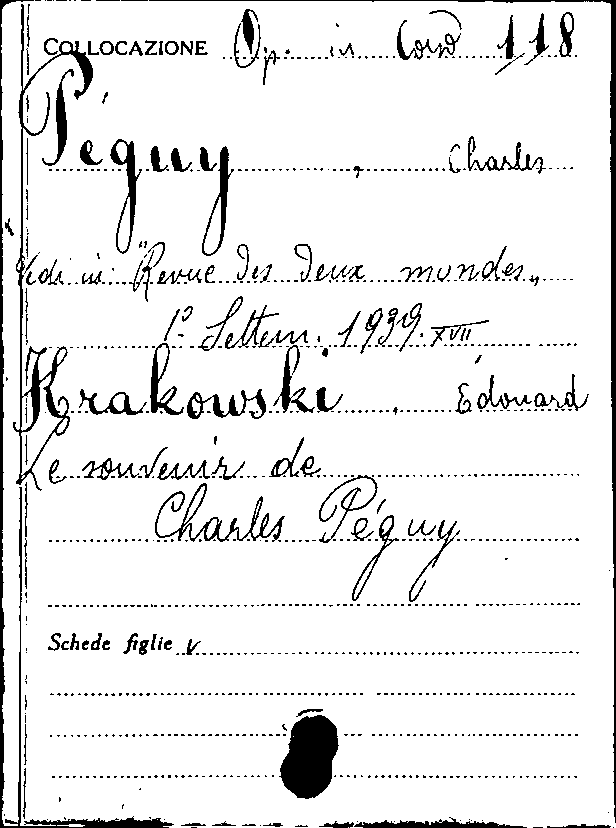 COLLOCAZIONE Op. in Cons 118
Péguy, Charles
Vedi in: "Revue des deux mondes„
1º Settem. 1939. XVII
Krakowski, Édouard
Le souvenir de
Charles Péguy
Schede figlie v